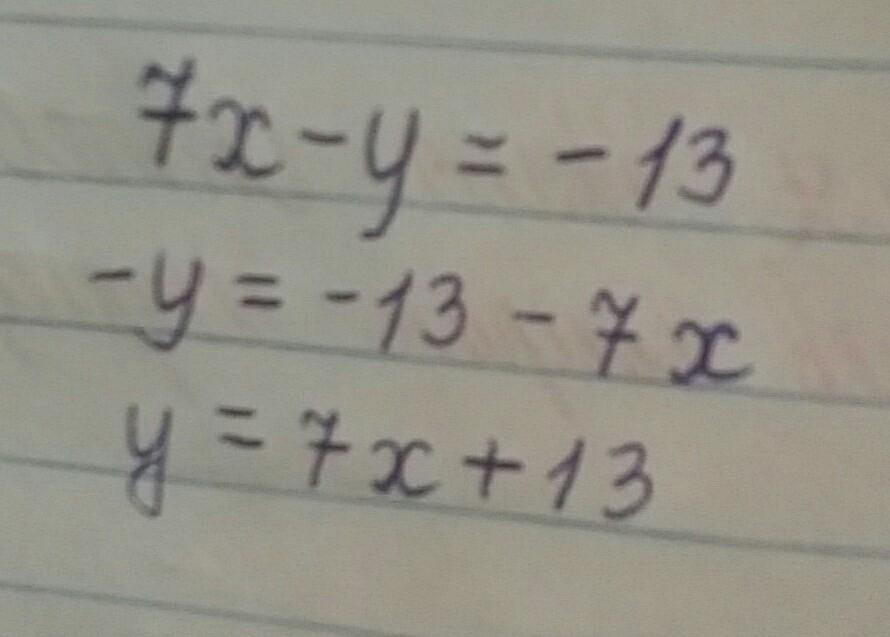 7x - y = - 13
- y = - 13 - 7x
y = 7x + 13